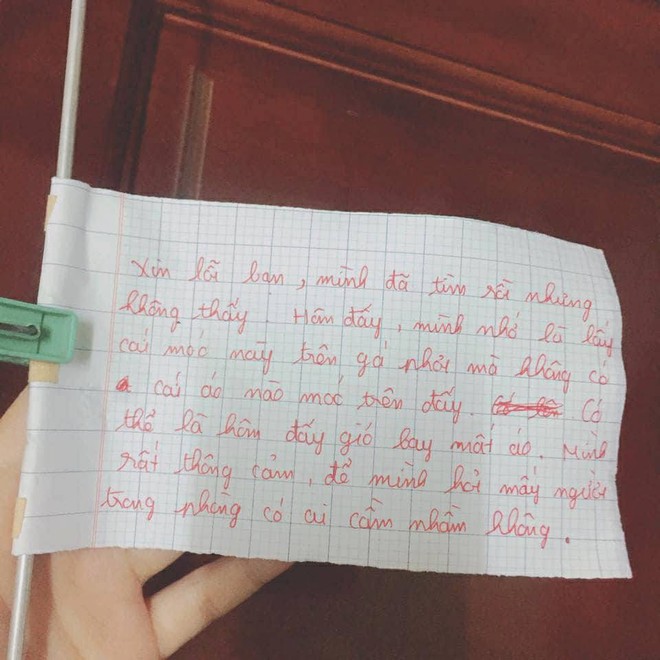 Xin lỗi bạn, mình đã tìm rồi nhưng
không thấy! Hôm đấy, mình nhớ là lấy
cái móc này trên gá phơi mà không có
cái áo nào móc trên đấy. Có
thể là hôm đấy gió bay mất áo. Mình
rất thông cảm, để mình hỏi mấy người
trong phòng có ai cầm nhầm không.